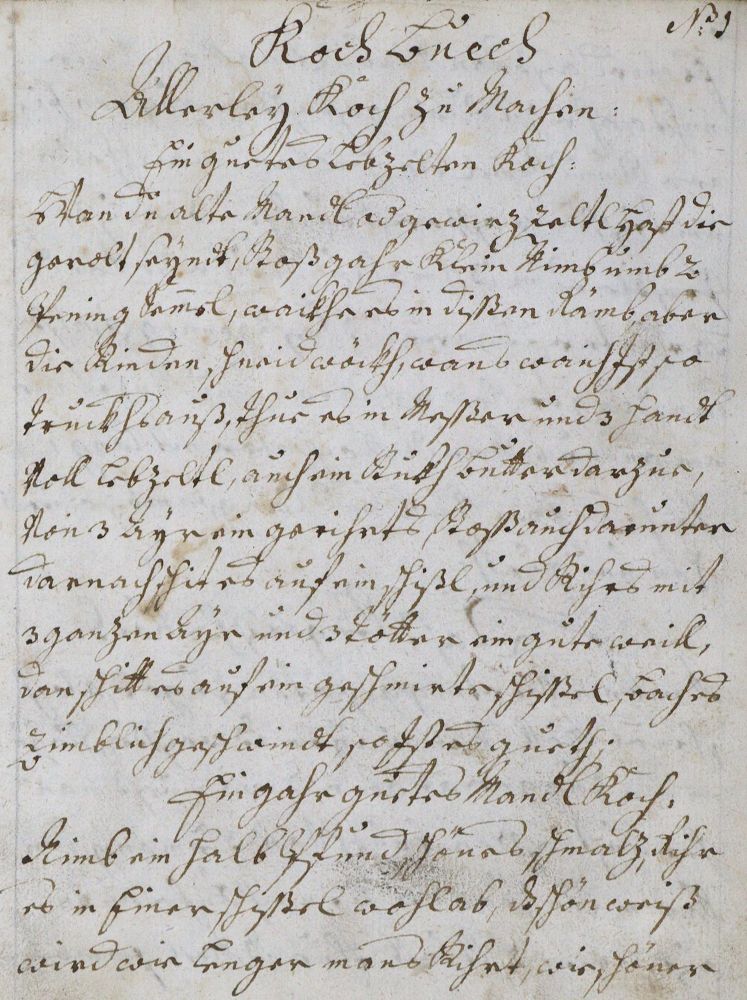 No: 1
Koch buech
Allerley Koch zu Machen:
Ein guetes Lebzelten Koch:
Wan du alte Mandl od gewirz zeltl hast die
gevolt seyndt, Stoß gahr Klein Nimb umb 2
Pening Semel, waikhe es in dißen Rämb, aber
die Rinden schneid wöckh, wans waich Ist so
truckhs auß, thue es in Meßer und 3 handt
Voll lebzeltl, auch ein Stukh butter darzue,
Von 3 Ayr ein gerihrts Stoß auch darunter
darnach schit es auf ein schißl, und Rihrs mit
3 ganzen Ayr und 3 tötter ein gute weill,
dan schitt es auf ein geschmirte schißel, bach es
zimblich geschwindt, so Ist es gueth.
Ein gahr guetes Mandl Koch:
Nimb ein halb Pfund schönes schmalz, Rihr
es in Einer schißel wohl ab, ds schön weiß
wird wie lenger mans Rihrt, wie schöner